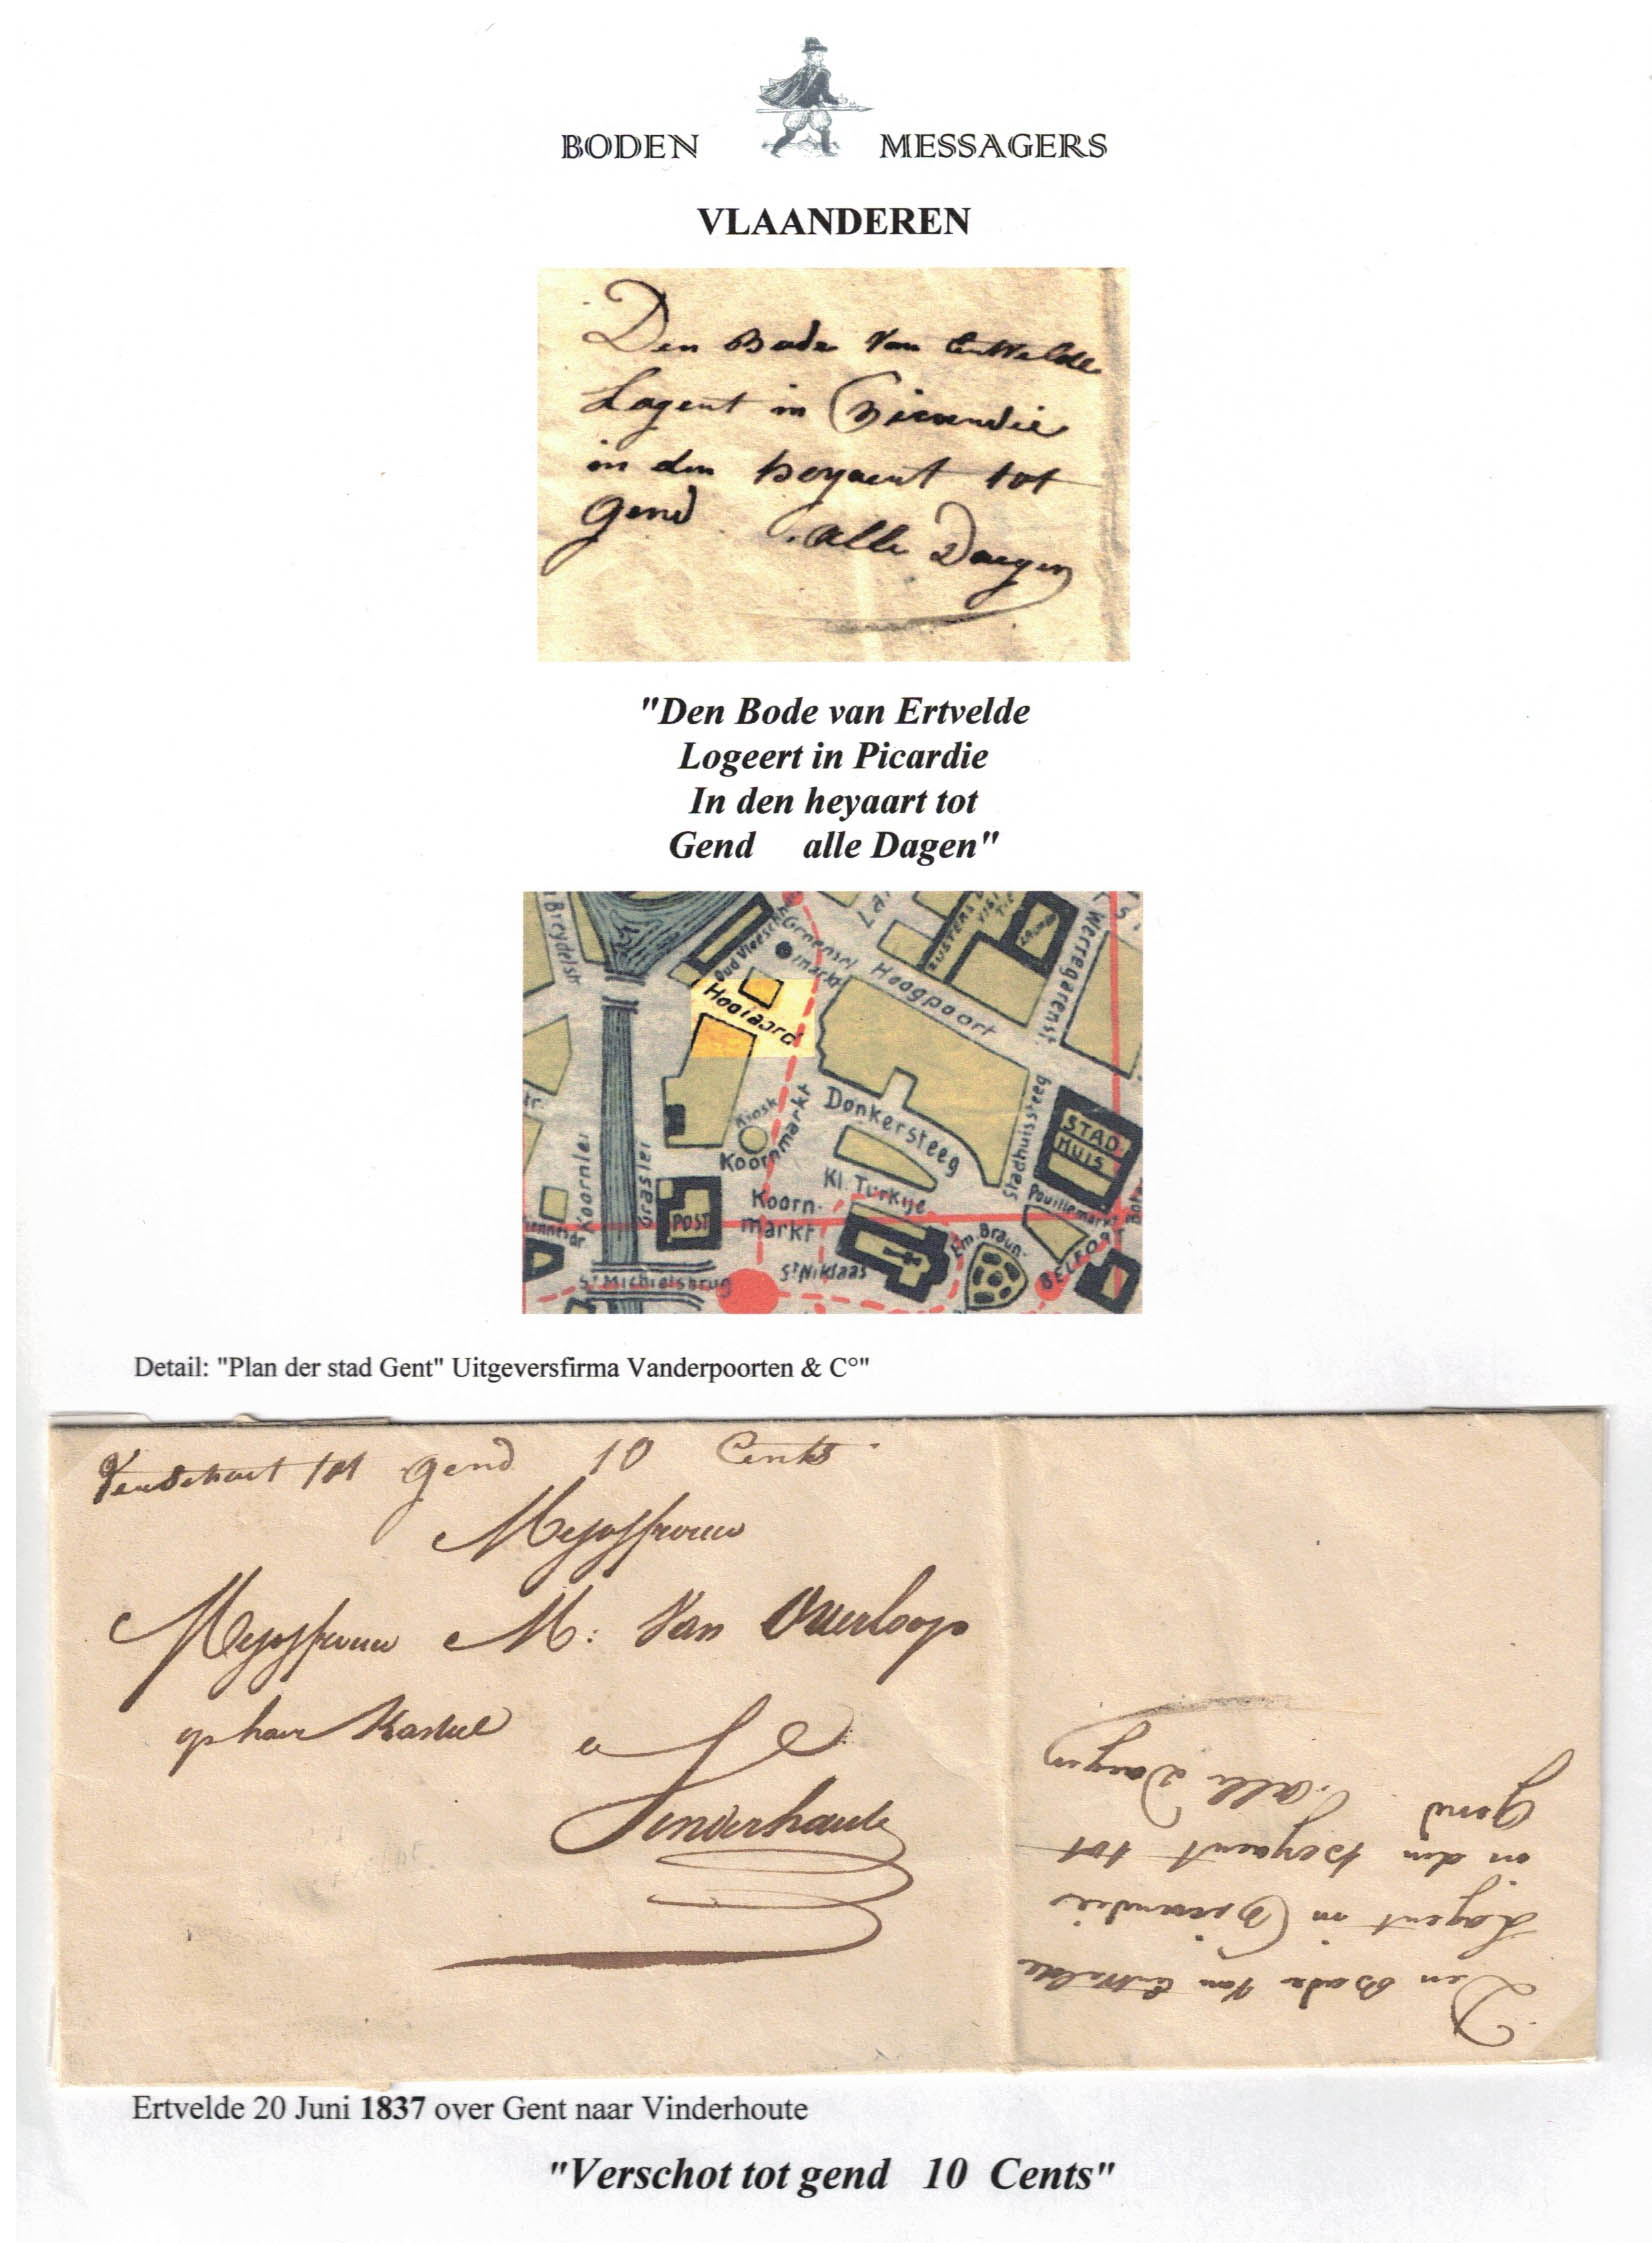 BODEN MESSAGERS
VLAANDEREN
Den Bode Van Ertvelde
Logeert in Picardie
in den heyaert tot
Gend alle Daegen
"Den Bode van Ertvelde
Logeert in Picardie
In den heyaart tot
Gend alle Dagen"
Breydelstr
Oud Vleeschh
Groensel
markt
Hooiaard
Hoogpoort
Werregarenst.
ZUSTERS
VISI
TIE
Koornlei
Graslei
Kiosk
Koornmarkt
Donkersteeg
Stadhuissteeg
STAD-
HUIS
Kl. Turkije
Pouillemarkt
POST
Koorn-
markt
Em. Braun-
BELFORT
St Niklaas
St Michielsbrug
Detail: "Plan der stad Gent" Uitgeversfirma Vanderpoorten & C°"
Verschot tot gend 10 Cents
Mejoffrouw
Mejoffrouw M: Van Overloop
op haer Kasteel
a
Vinderhaute
Den Bode Van Ertvelde
Logeert in Picardie
in den heyaert tot
Gend alle Daegen
Ertvelde 20 Juni 1837 over Gent naar Vinderhoute
"Verschot tot gend 10 Cents"